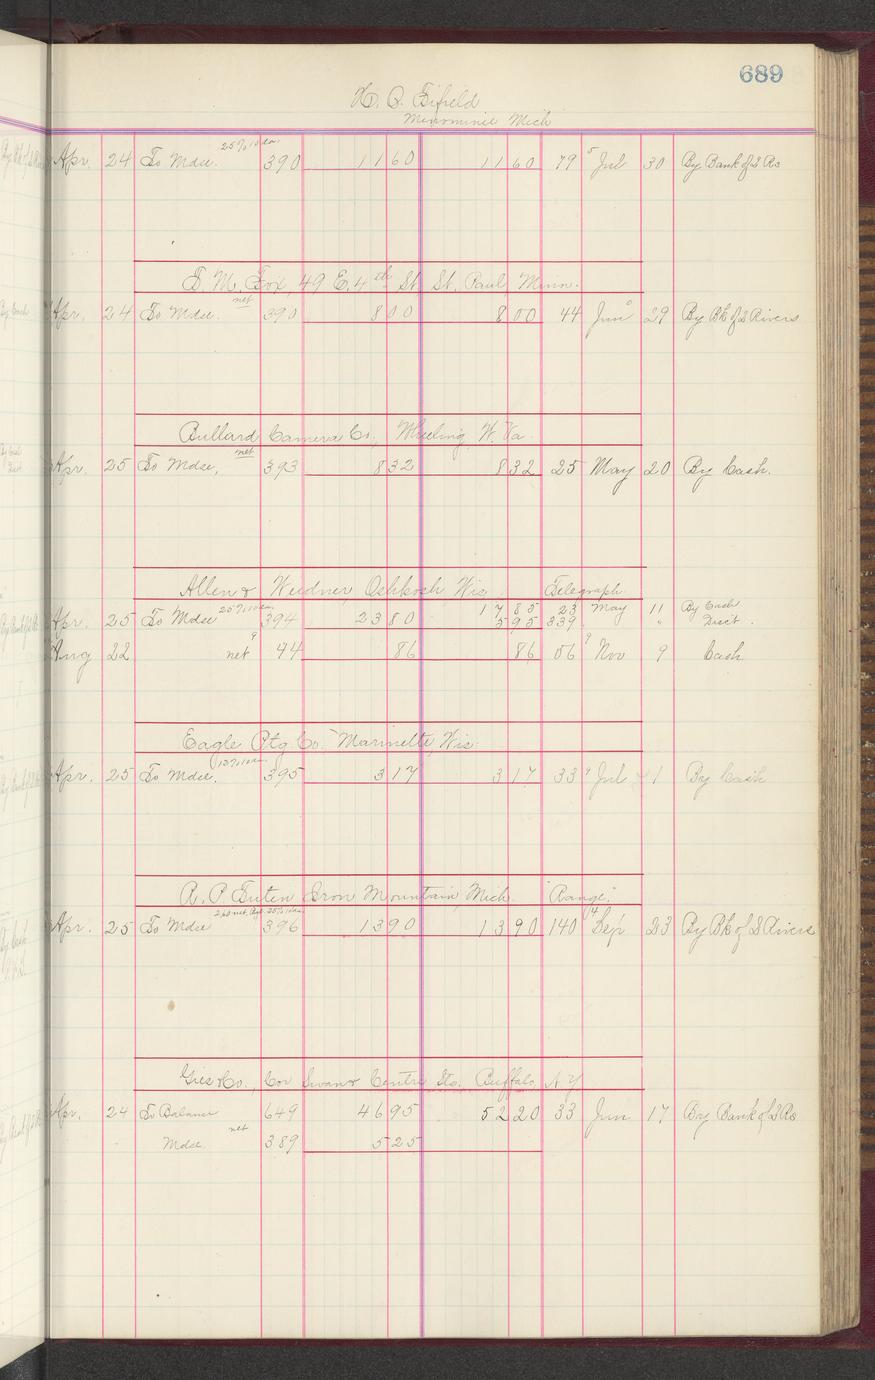 689
H. Q. Fifield
Menominie Mich
Apr. 24 To Mdse. 25% 10 da. 390 1160 1160 79 5 Jul 30 By Bank of 3 Rs
T. M. Fox, 49 E. 4th St. St. Paul, Minn.
Apr. 24 To Mdse. net 390 800 800 44 Jun 29 By Bk of 3 Rivers
Bullard Camera Co., Wheeling, W. Va.
Apr. 25 To Mdse, net 393 832 832 25 May 20 By Cash.
Allen & Weidner, Oshkosh Wis Telegraph
Apr. 25 To Mdse 25% 10 da. 394 2380 1785 23 May 11 By Cash
595 339 " Disct.
Aug 22 net 9 44 86 86 06 9 Nov 9 Cash
Eagle Ptg Co. Marinette, Wis.
Apr. 25 To Mdse. 395 317 317 33 9 Jul 1 By Cash
Iron Mountain, Mich. "Range."
Apr. 25 To Mdse 396 1390 1390 140 14 Sep 23 By Bk of 3 Rivers
Gies & Co., Cor Swan & Centre Sts., Buffalo, N Y
Apr. 24 To Balance 649 4695 5220 33 Jun 17 By Bank of 3 Rs
Mdse. net 389 525